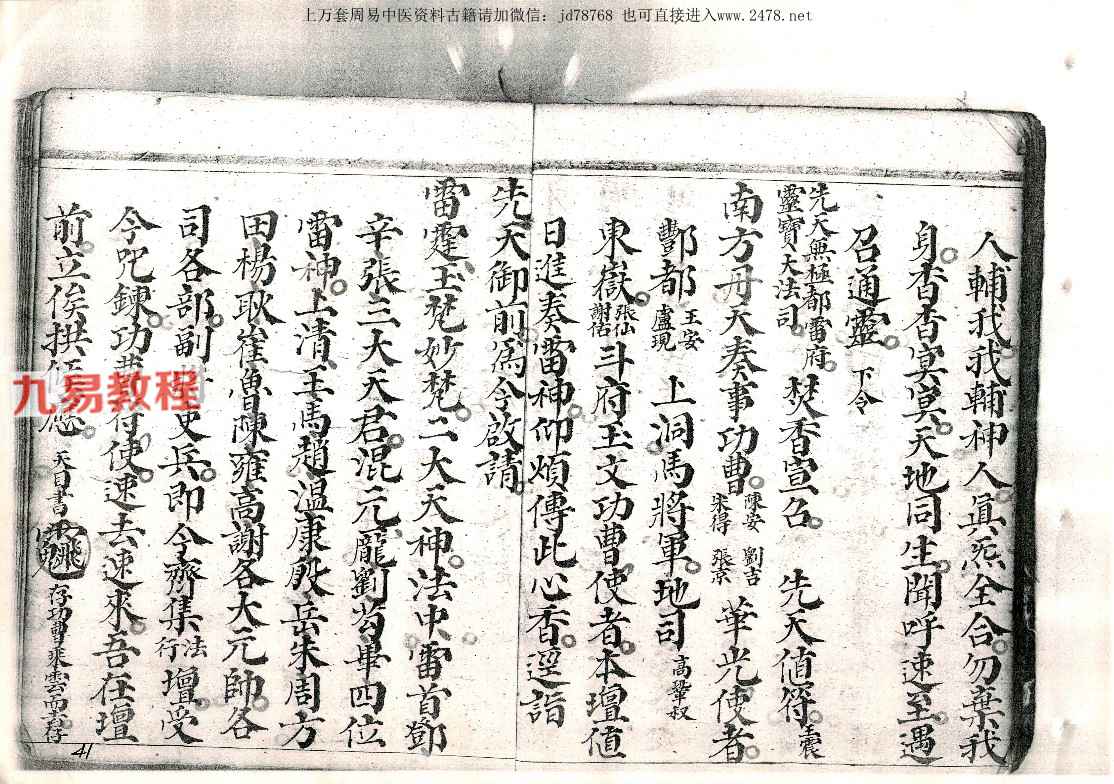 上万套周易中医资料古籍请加微信：jd78768 也可直接进入www.2478.net
人輔我我輔神人眞炁全合勿棄我
身杳杳冥冥天地同生聞呼速至遇
召通靈 下令
先天無極都雷府
靈寶大法司 焚香宣召 先天值符 王震
南方丹天奏事功曹 陳安 宋得 劉吉 張京 華光使者
酆都 王安 盧現 上洞馬將軍地司 高 叔
東嶽 張仙 謝佑 斗府王文功曹使者本壇值
日進奏雷神仰煩傳此心香逕詣
先天御前爲今啟請
雷霆玉梵妙梵二大天神法中雷首鄧
辛張三大天君混元龐劉苟畢四位
雷神上清王馬趙溫康殷岳朱周方
田楊耿崔魯陳雍高謝各大元帥各
司各部副 吏兵即令齊集 法行 壇受
今咒鍊功 符使速去速來吾在壇
前立俟拱 天目書 存功曹乘雲而 存
九易教程
41